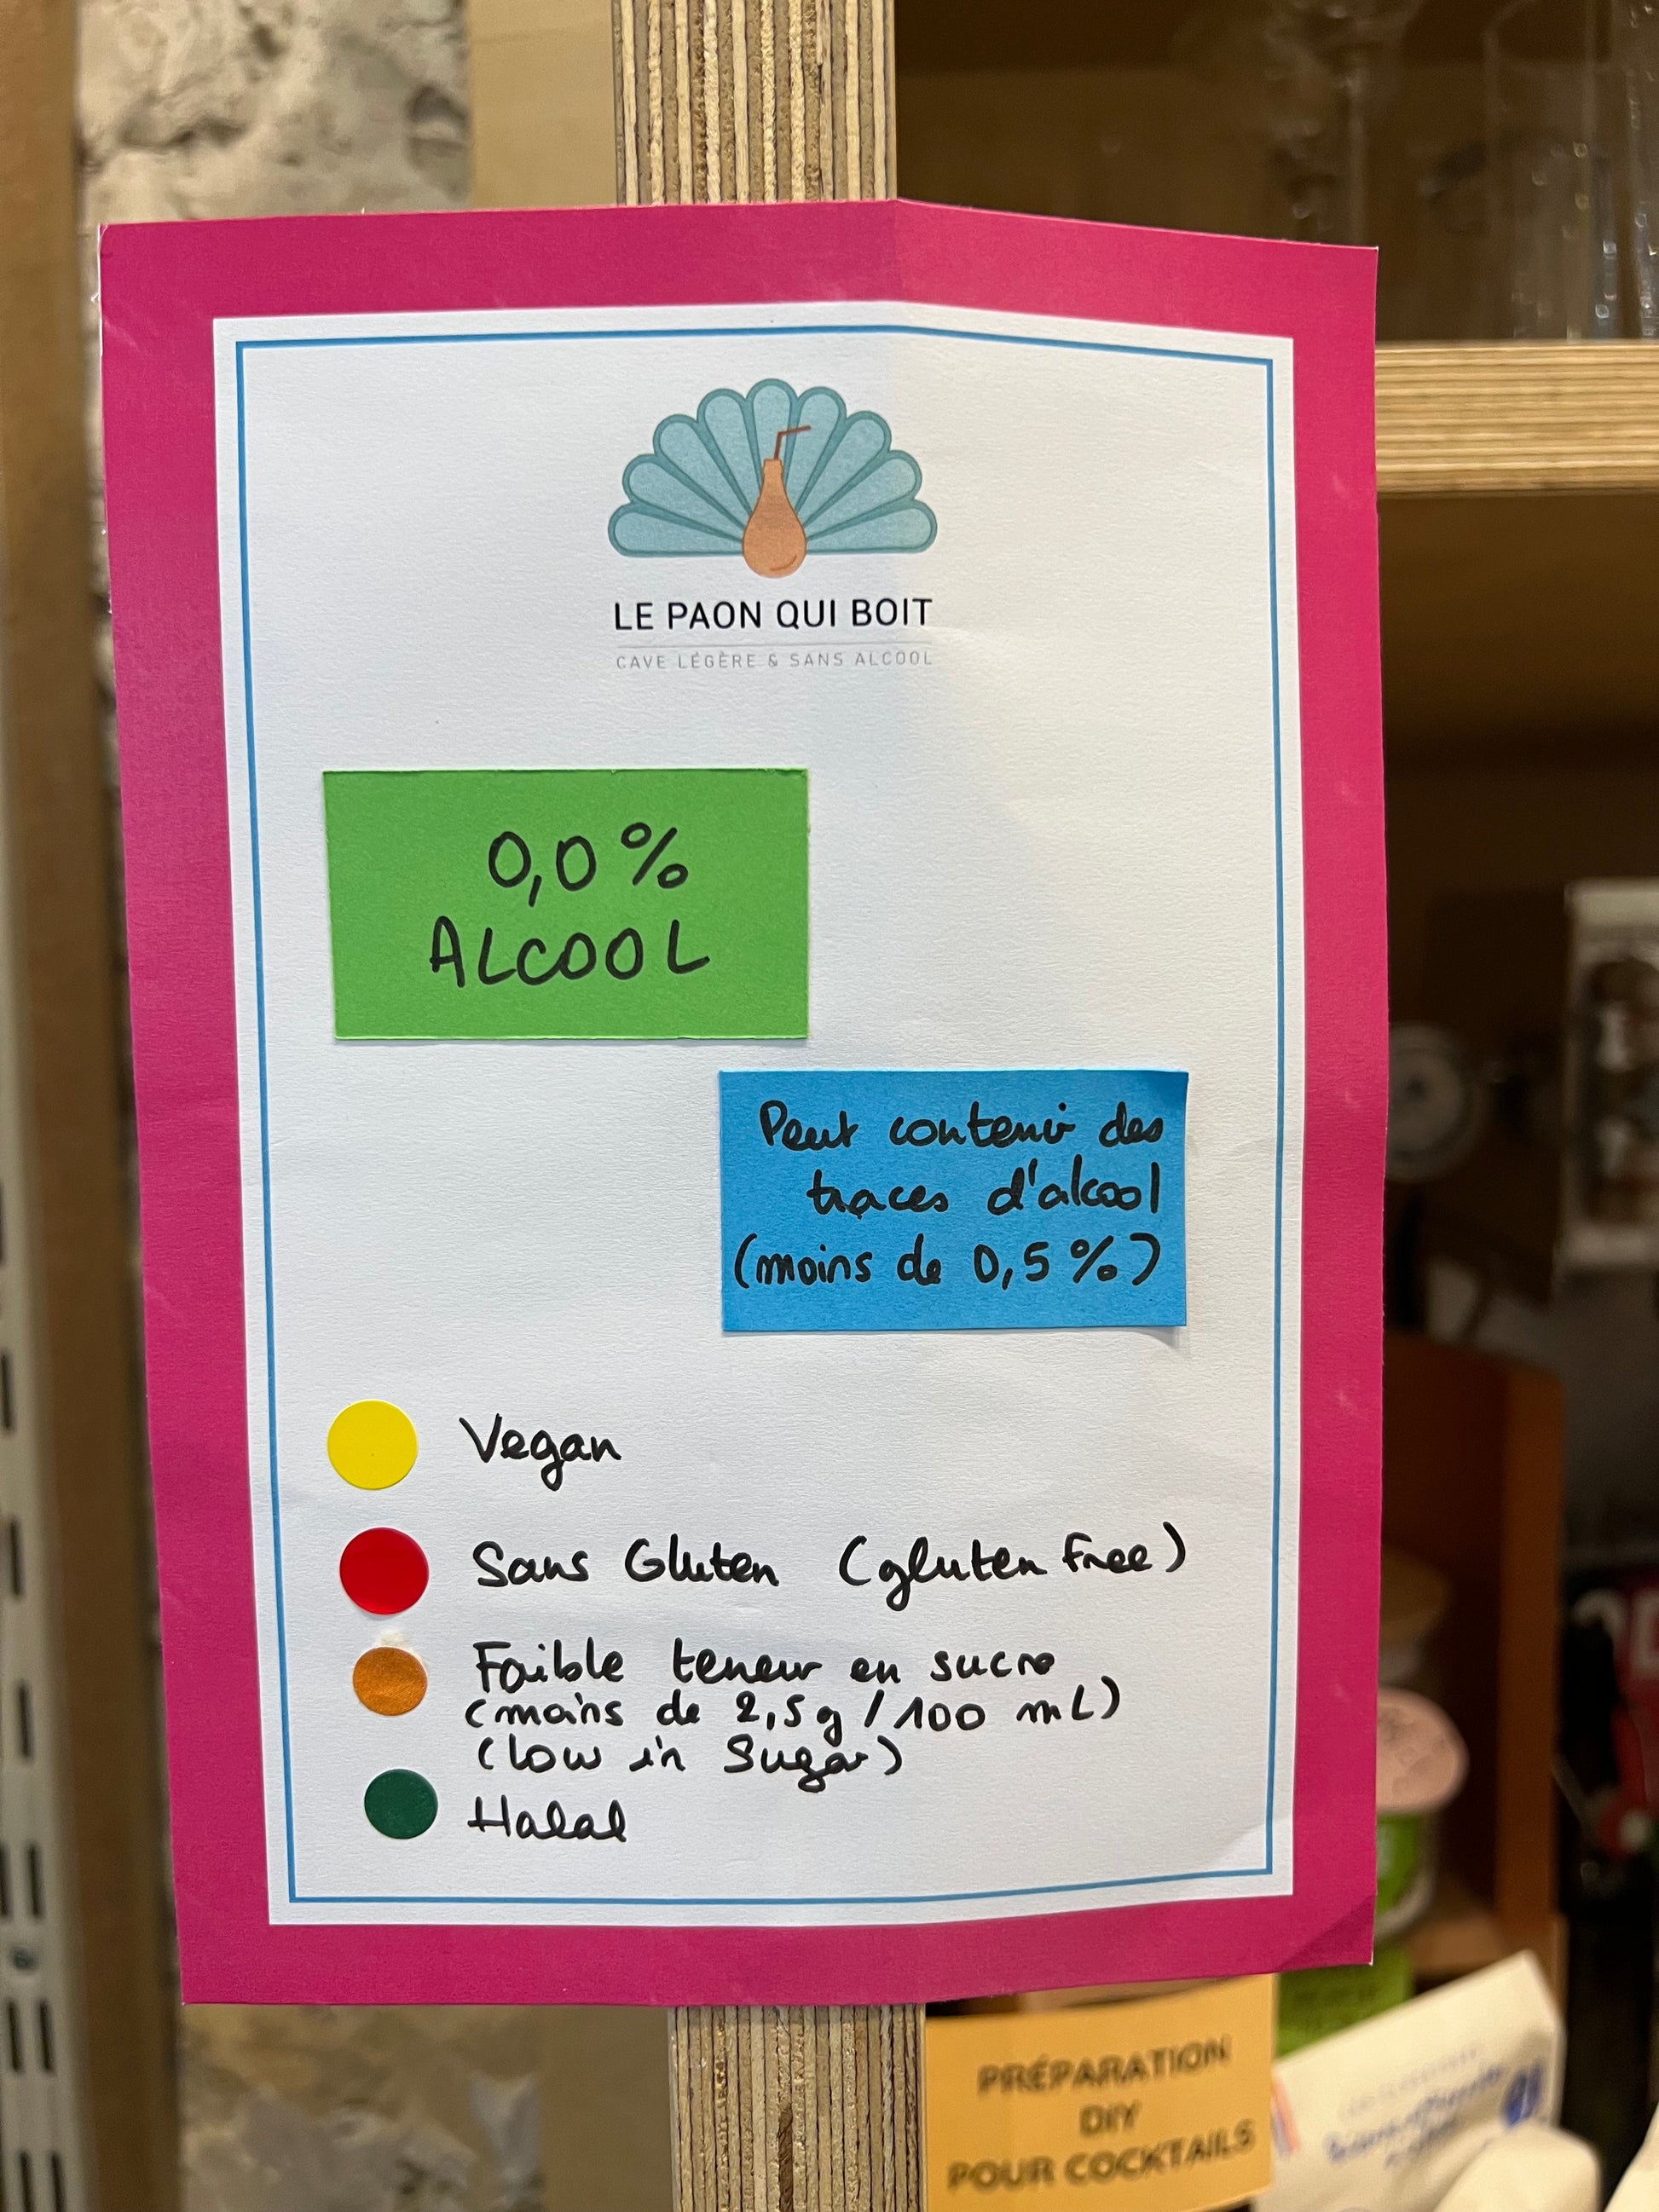 LE PAON QUI BOIT
CAVE LÉGÈRE & SANS ALCOOL
0,0%
ALCOOL
Peut contenir des
traces d'alcool
(moins de 0,5%)
Vegan
Sans Gluten (gluten free)
Faible teneur en sucre
(moins de 2,5g/100 mL)
(low in Sugar)
Halal
PRÉPARATION
DIY
POUR COCKTAILS